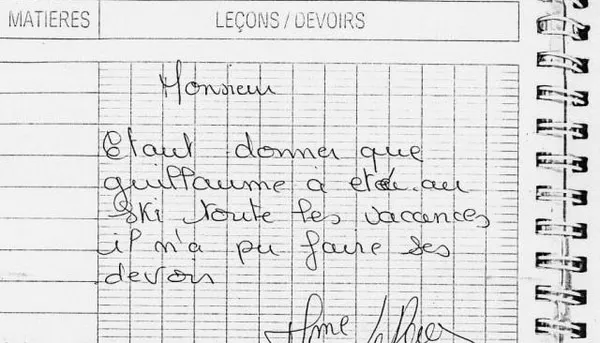 MATIERES LEÇONS / DEVOIRS
Monsieur
Etant donner que
guillaume à etée au
ski toute les vacances
il n'à pu faire ses
devoirs
Mme